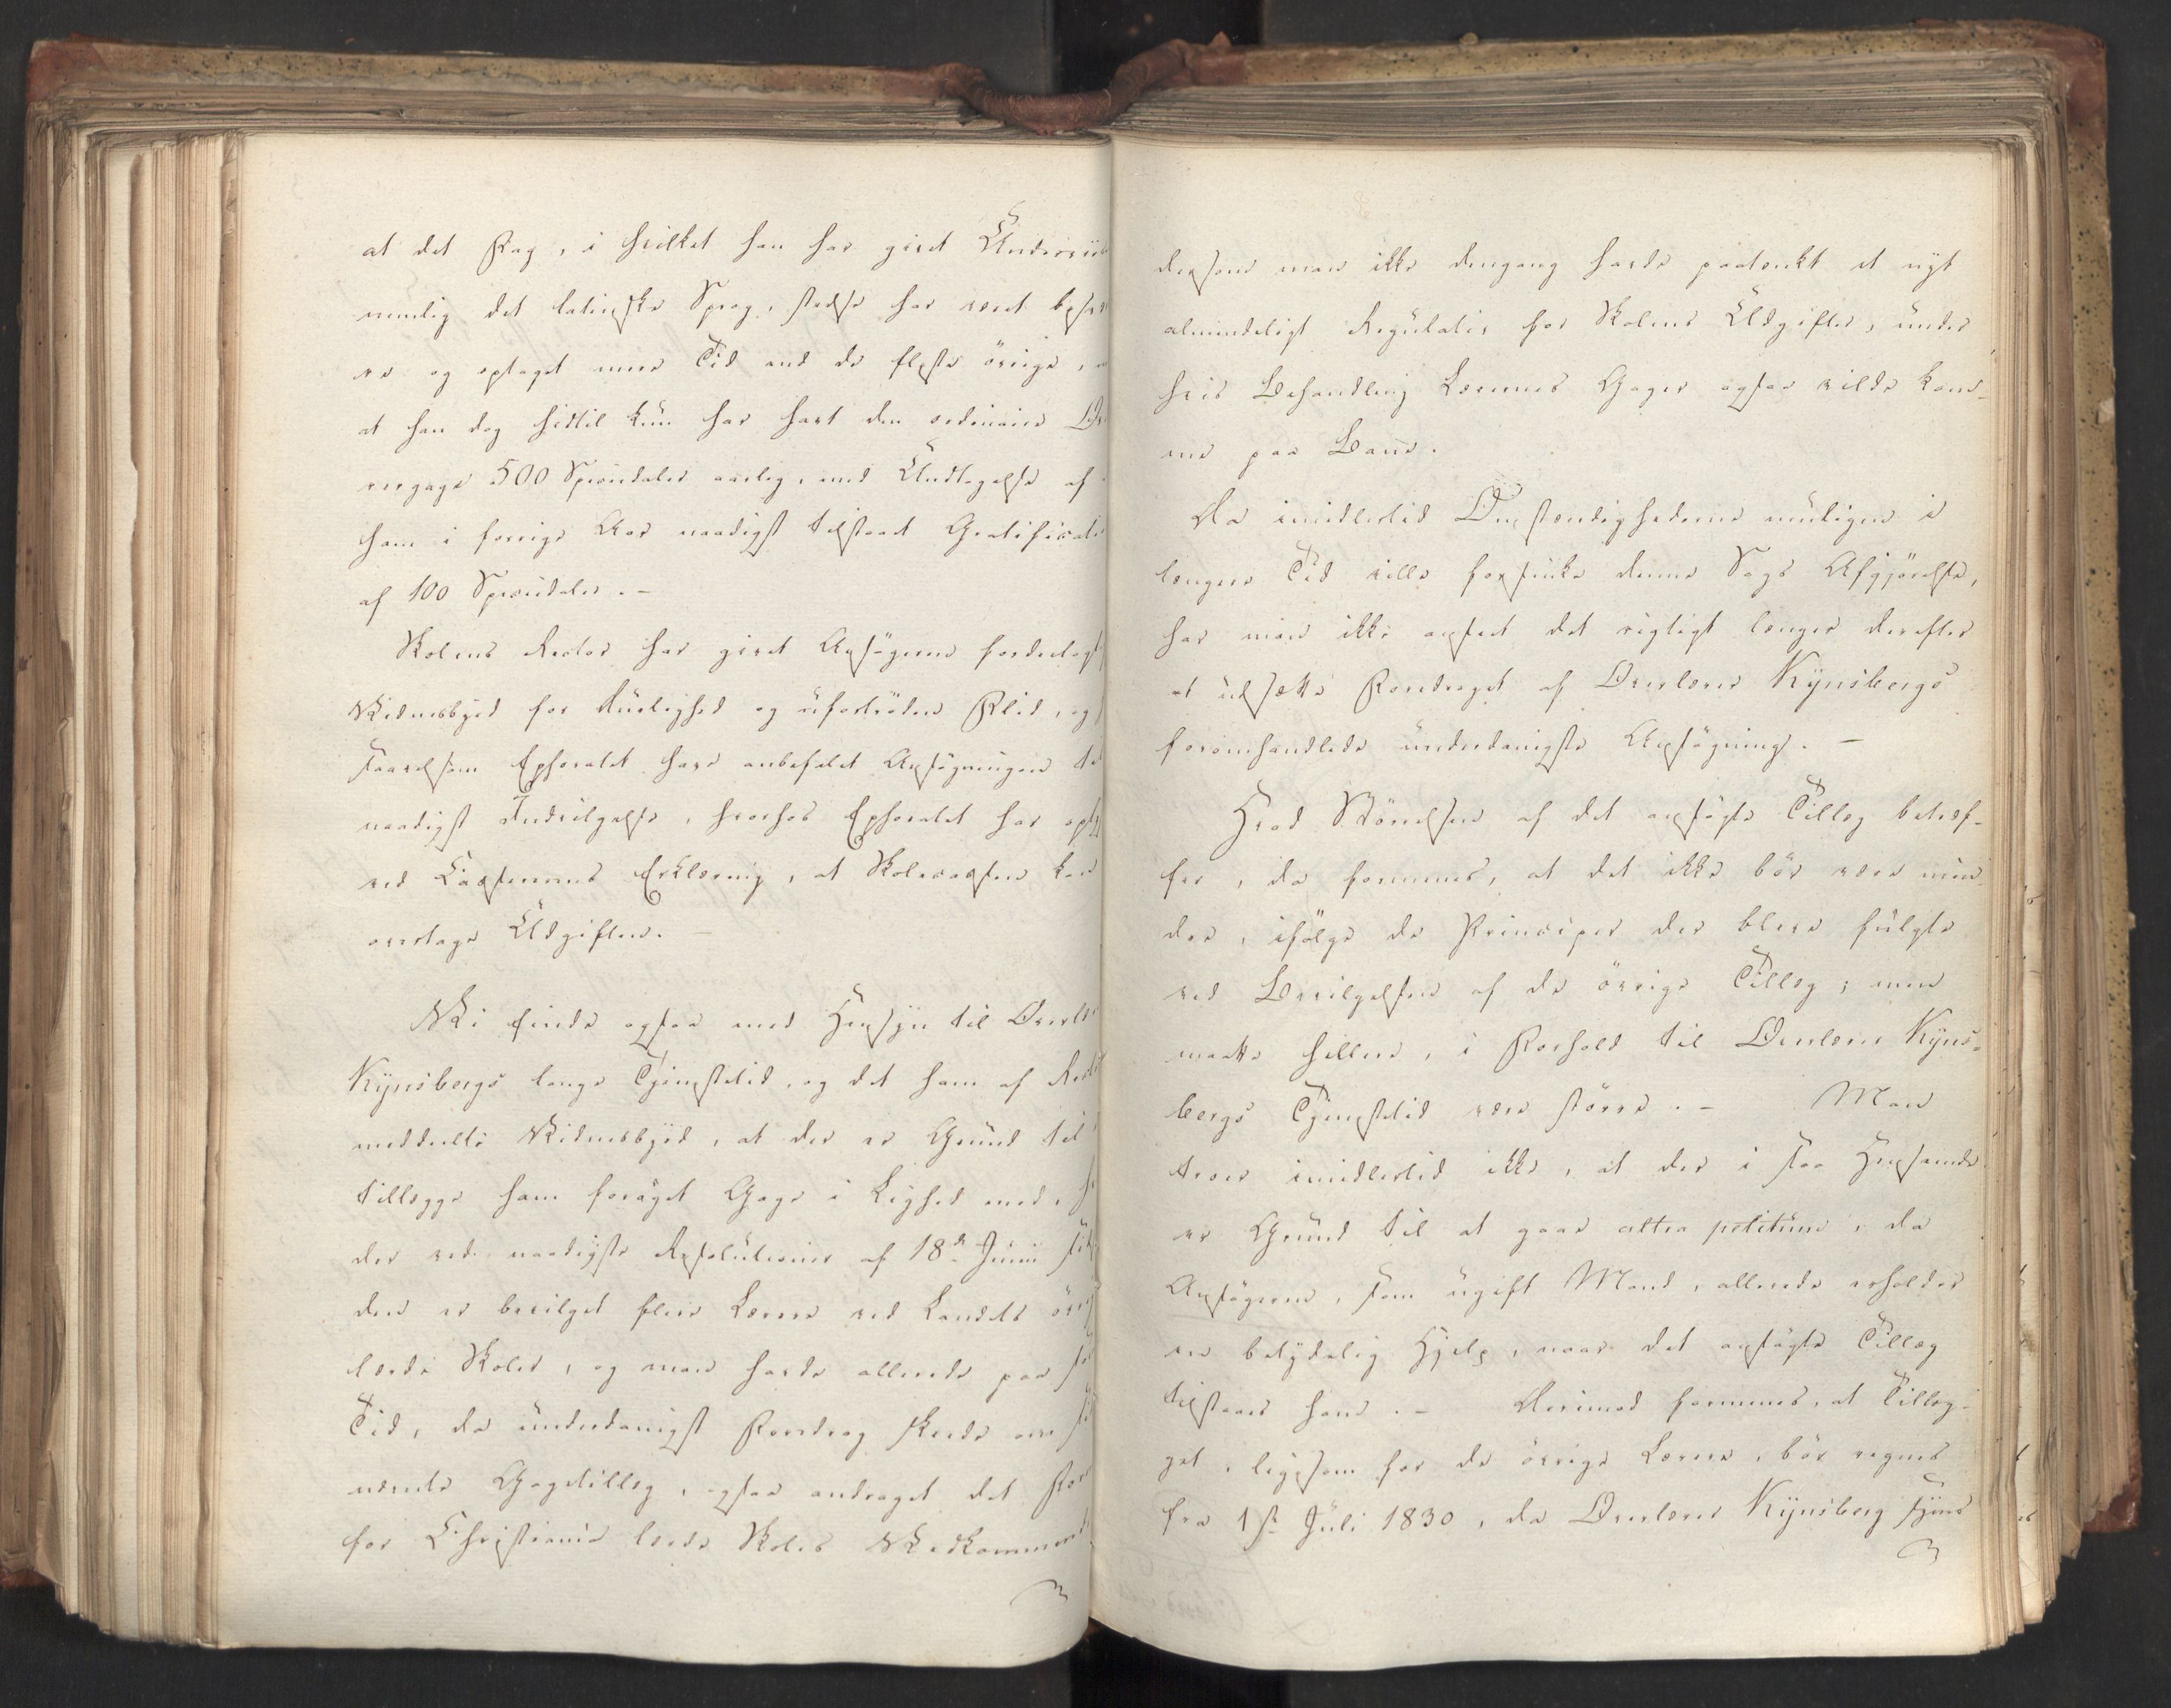 at det Fag, i hvilket han har givet Underviis
nemlig det latinske Sprog, stedse har været besvær
re og optaget mere Tid end de fleste övrige,
at han dog hidtil kun har havt den ordinaire Ov
rergage 500 Speciedaler aarlig, med Undtagelse af
ham i forrige Aar naadigst tilstaaet Gratificati
af 100 Speciedaler. –
Skolens Rector har givet Ansögeren fordeelagt
Vidnesbyrd for Duelighed og ufortröden Flid, og
saavelsom Ephoratet have anbefalet Ansögningen til
naadigst Indvilgelse, hvorhos Ephoratet har opl
ved Casserernes Erklæring, at Skolecassen kan
overtage Udgiften. –
Vi finde ogsaa med Hensyn til Overlæ
Kynsbergs lange Tjenestetid, og det ham af Recto
meddeelte Vidnesbyrd, at der er Grund til
tillægge ham foröget Gage i Lighed med, h
der ved naadigste Resolutioner af 18de Junii sid
den er bevilget flere Lærere ved Landets övrig
lærde Skoler, og man havde allerede paa
Tid, da underdanigst Foredrag skeede om
nævnte Gagetillæg, ogsaa andraget det For
for Christiania lærde Skoles Vedkommend
dersom man ikke dengang havde paatænkt et nyt
almindeligt Regulativ for Skolens Udgifter, under
hvis Behandling Lærernes Gager ogsaa vilde kom-
me paa Bane.
Da imidlertid Omstændighederne muligen i
længere Tid ville forsinke denne Sags Afgjörelse,
har man ikke anseet det rigtigt længer derefter
at udsætte Foredraget af Overlærer Kynsbergs
foromhandlede underdanigste Ansögning. –
Hvad Störrelsen af det ansögte Tillæg betref-
fer, da formenes, at det ikke bör være min-
dre, ifölge de Principer der bleve fulgte
ved Bevilgelsen af de övrige Tillæg; men
maatte hellere, i Forhold til Overlærer Kyns-
bergs Tjenestetid være större. – Man
troer imidlertid ikke, at der i saa Henseende
er Grund til at gaae ultra petitum, da
Ansögeren, som ugift Mand, allerede erholder
en betydelig Hjelp, naar det ansögte Tillæg
tilstaaes ham. – Derimod formenes, at Tillæg-
get, ligesom for de övrige Lærere, bör regnes
fra 1ste Juli 1830, da Overlærer Kynsberg synes